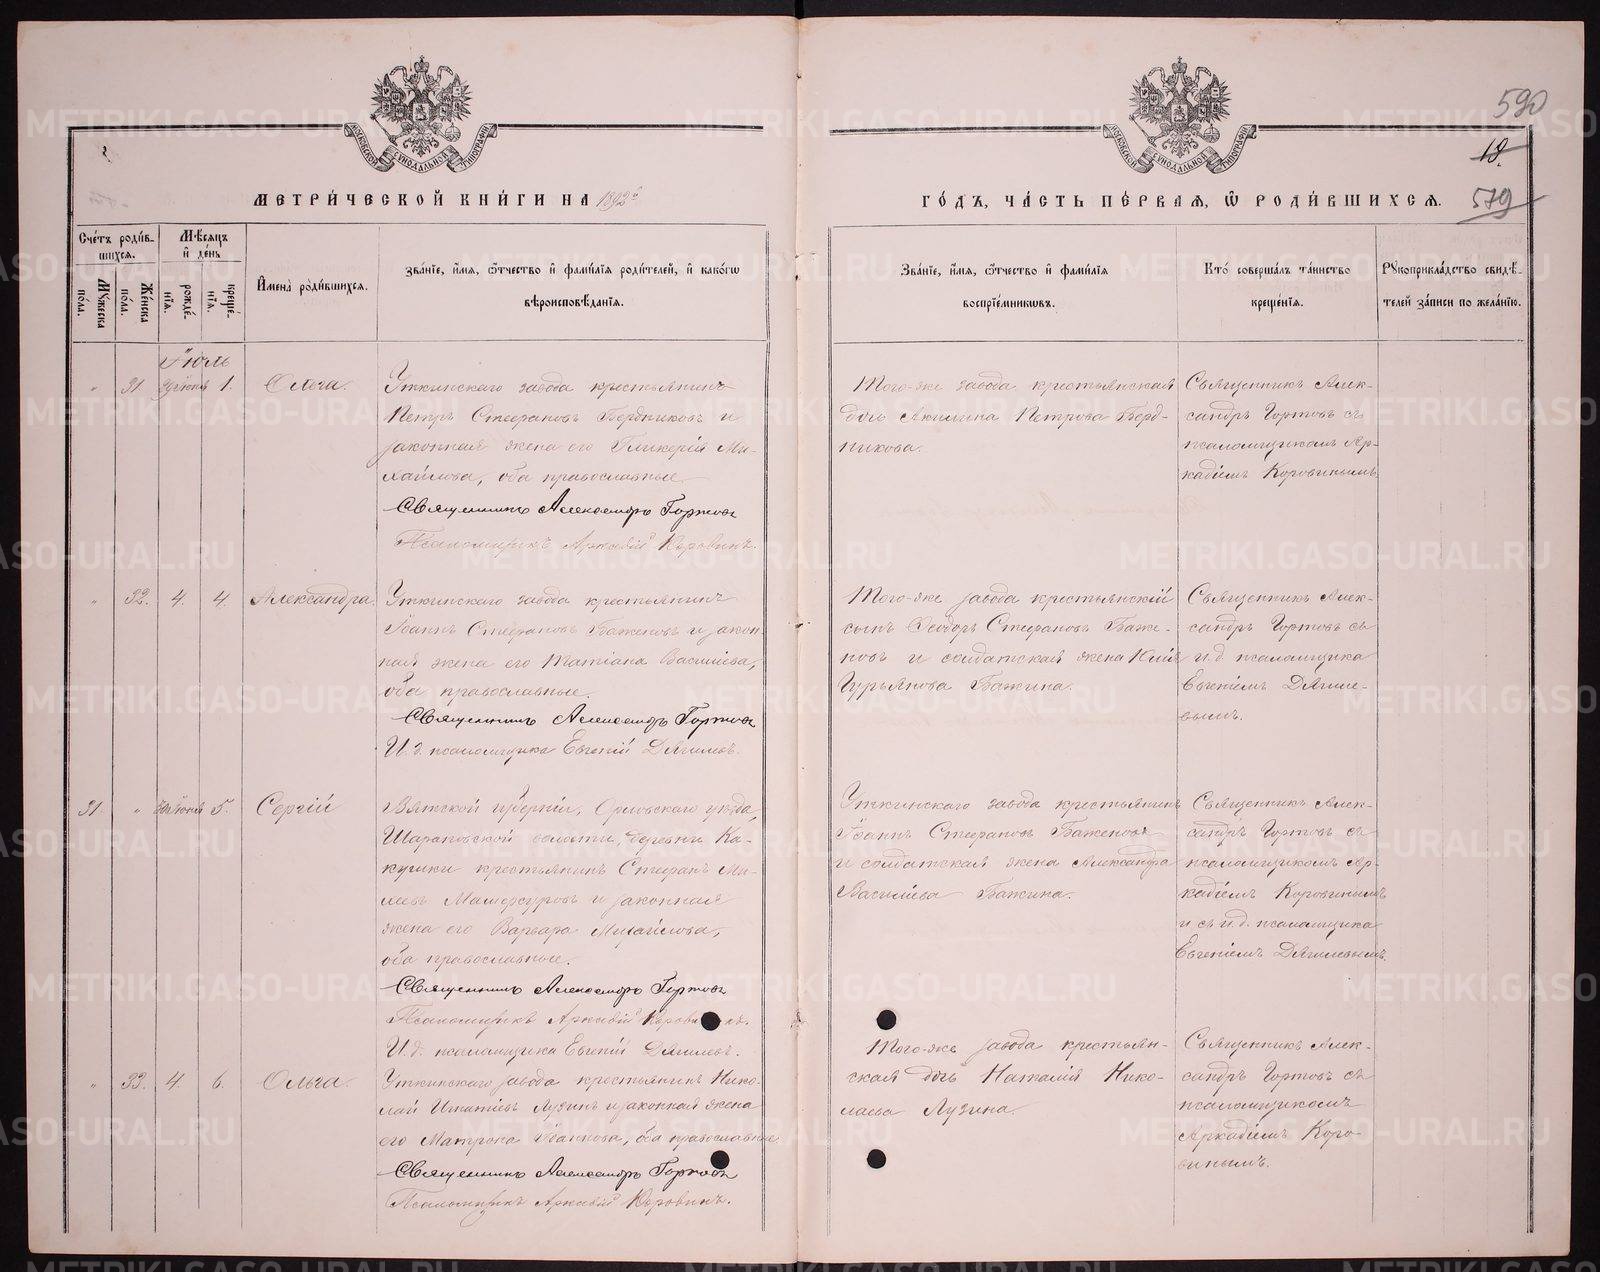 590
18.
579
МЕТРИЧЕСКОЙ КНИГИ НА 1892й
Счетъ родившихся.
Мужеска пола.
Женска пола.
Мѣсяцъ и день
рожденія.
крещенія.
Имена родившихся.
Званіе, имя, отчество и фамилія родителей, и какогѡ
вѣроисповѣданія.
Іюль
" 31 1. Ольга.
Уткинскаго завода крестьянинъ
Петръ Стефановъ Бердниковъ и
законная жена его Гликерія Ми-
хайлова, оба православные
Священникъ Александръ Гортовъ
Псаломщикъ Аркадій Коровинъ.
" 32. 4. 4. Александра.
Уткинскаго завода крестьянинъ
Іоаннъ Стефановъ Баженовъ и закон-
ная жена его Татіана Васильева,
оба православные.
Священникъ Александръ Гортовъ
И. д. псаломщика Евгеній Дягилевъ.
31. " 5. Сергій
Вятской губерніи, Орловскаго уѣзда,
Шараповской волости, деревни Ка-
крестьянинъ Стефанъ Ми-
и законная
жена его Варвара Михайлова,
оба православные.
Священникъ Александръ Гортовъ
Псаломщикъ Аркадій Коровинъ.
И. д. псаломщика Евгеній Дягилевъ.
" 33. 4. 6. Ольга.
Уткинскаго завода крестьянинъ Нико-
лай Игнатіевъ Лузинъ и законная жена
его Матрона Іоаннова, оба православные
Священникъ Александръ Гортовъ
Псаломщикъ Аркадій Коровинъ.
ГОДЪ, ЧАСТЬ ПЕРВАЯ, Ѡ РОДИВШИХСЯ.
Званіе, имя, отчество и фамилія
воспріемниковъ.
Кто совершалъ таинство
крещенія.
Рукоприкладство свидѣ-
телей записи по желанію.
Того-же завода крестьянская
дочь Акилина Петрова Берд-
никова.
Священникъ Алек-
сандръ Гортовъ съ
псаломщикомъ Ар-
кадіемъ Коровинымъ
Того-же завода крестьянскій
сынъ Ѳеодоръ Стефановъ Баже-
новъ и солдатская жена
Гурьянова Бажина.
Священникъ Алек-
сандръ Гортовъ съ
и. д. псаломщика
Евгеніемъ Дягиле-
вымъ.
Уткинскаго завода крестьянинъ
Іоаннъ Стефановъ Баженовъ
и солдатская жена Александра
Васильева Бажина.
Священникъ Алек-
сандръ Гортовъ съ
псаломщикомъ Ар-
кадіемъ Коровинымъ
и съ и. д. псаломщика
Евгеніемъ Дягилевымъ.
Того-же завода крестьян-
ская дочь Наталія Нико-
лаева Лузина.
Священникъ Алек-
сандръ Гортовъ съ
псаломщикомъ
Аркадіемъ Коро-
винымъ.
METRIKI.GASO-URAL.RU